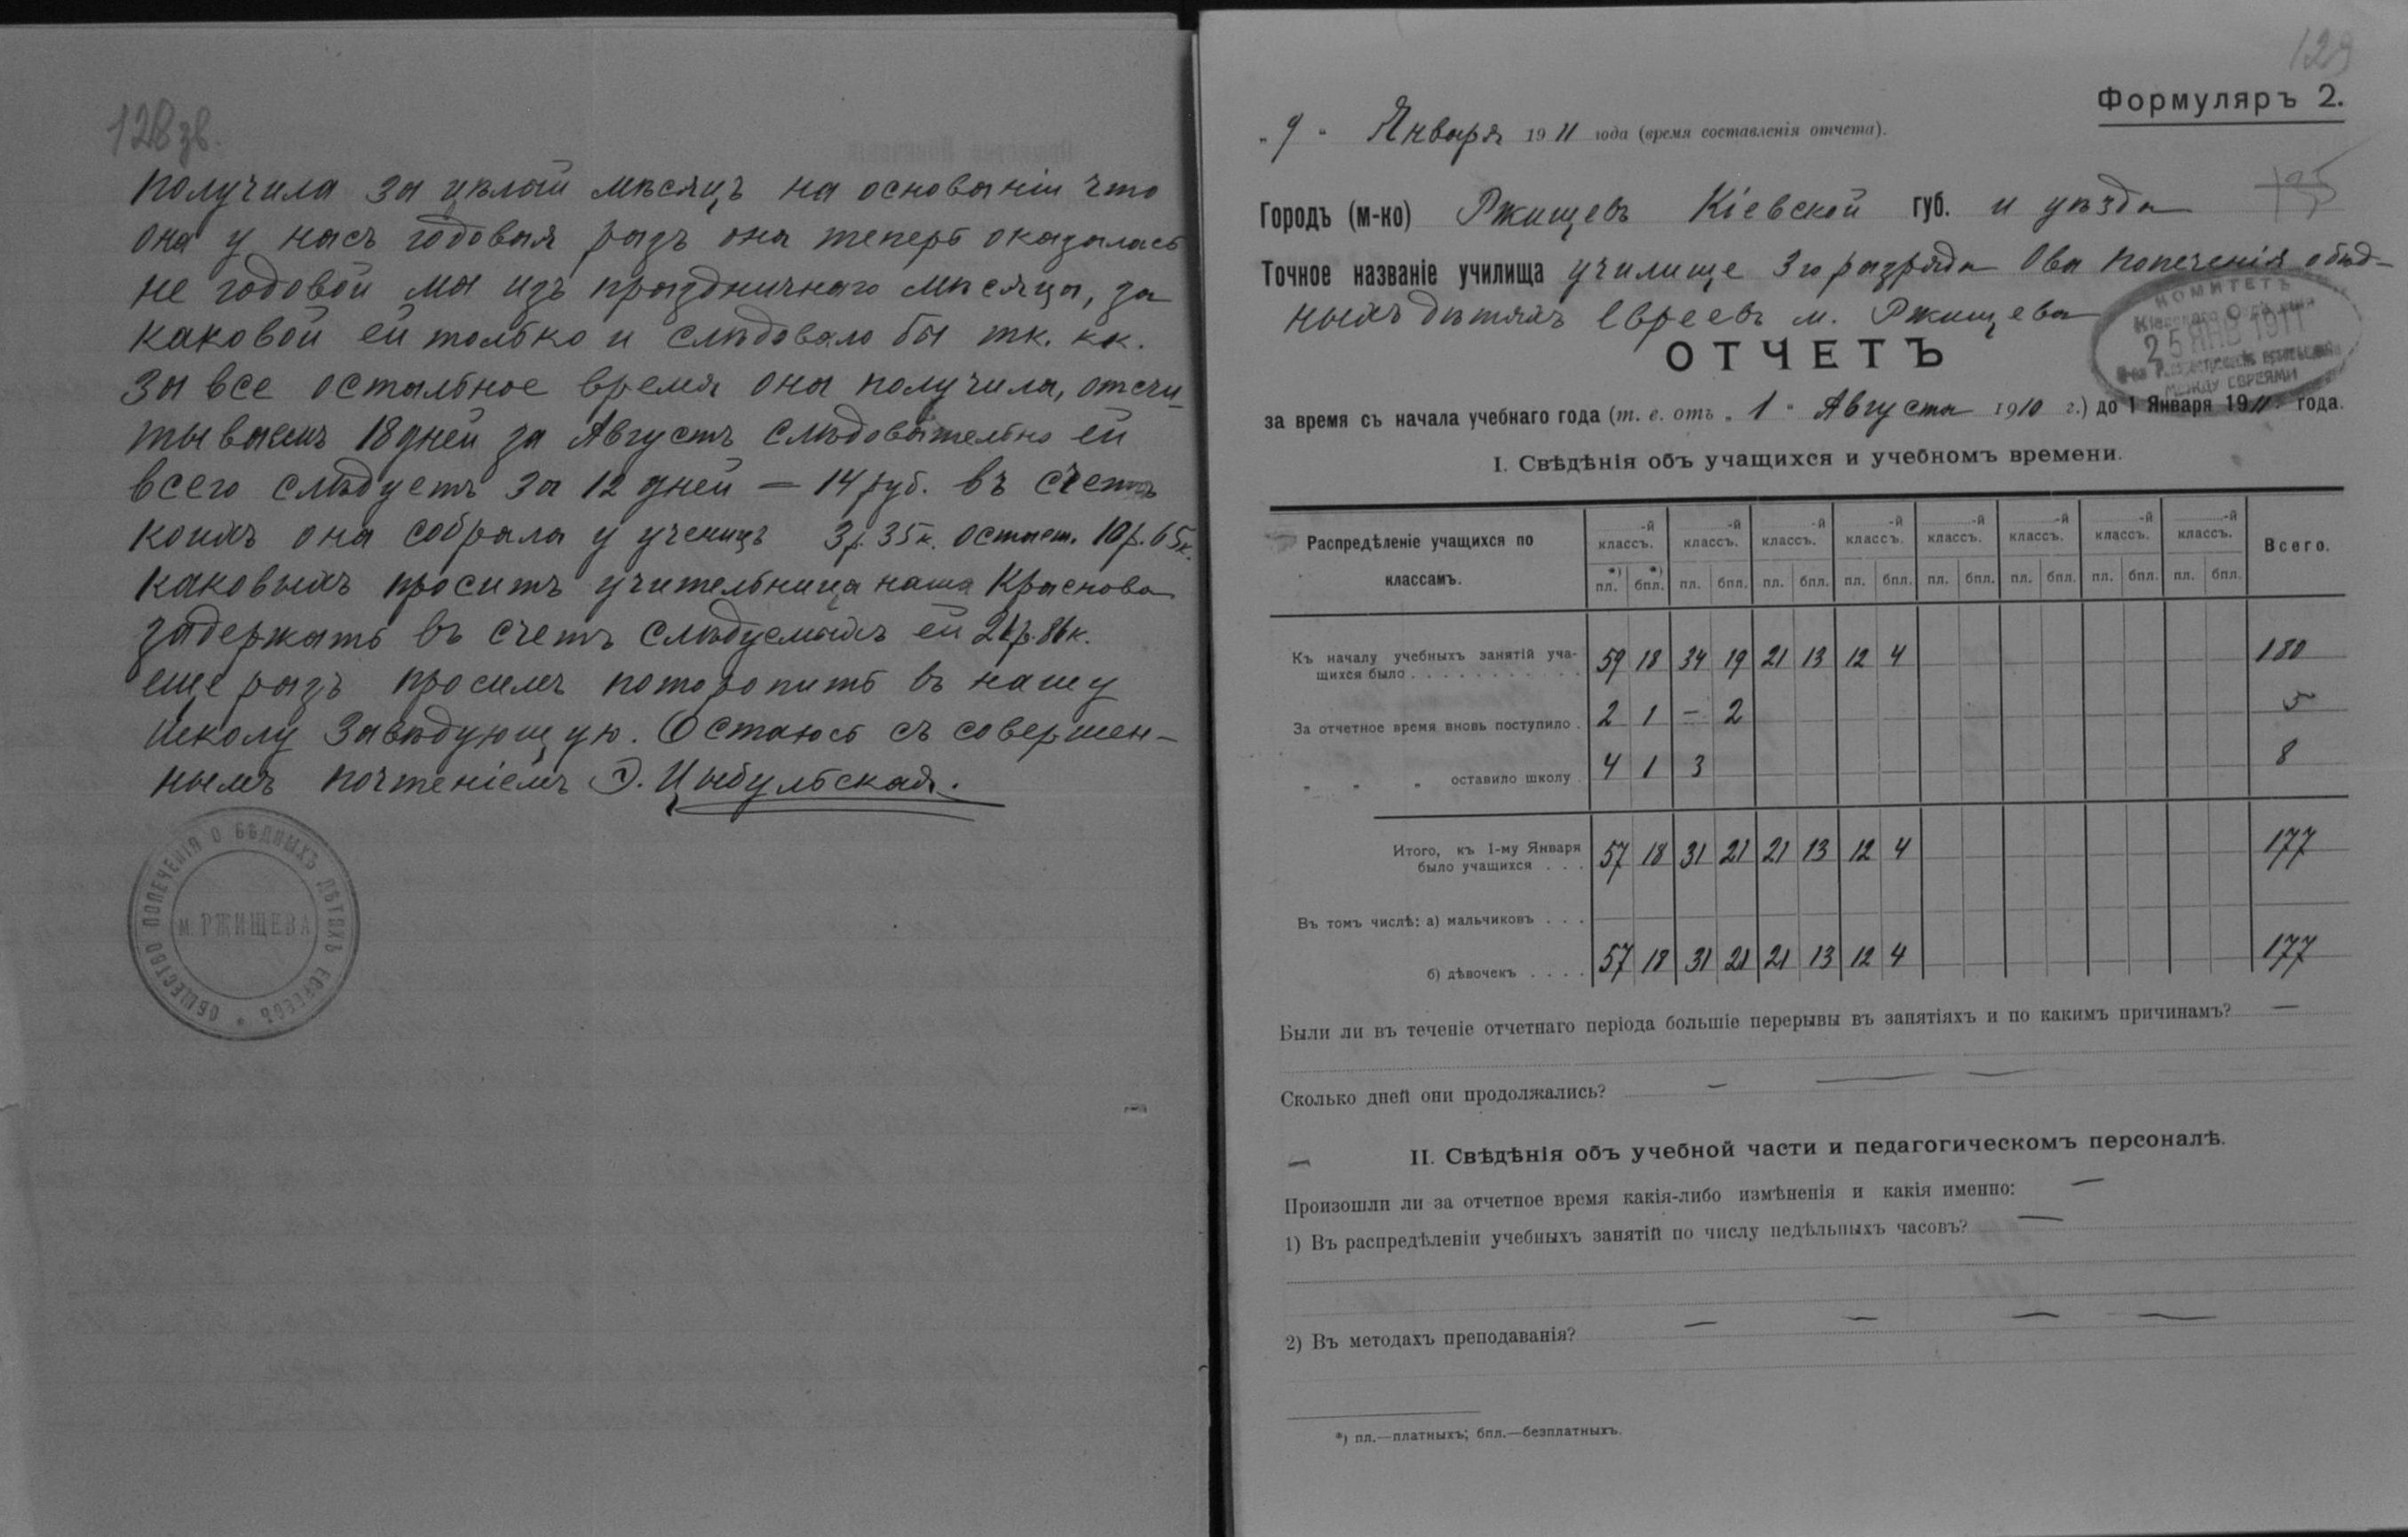 128 зв.
получила за цѣлый мѣсяцъ на основаніи что
она у насъ годовая разъ она теперь оказалась
не годовой мы изъ праздничнаго мѣсяца, за
каковой ей только и слѣдовало бы тк. кк.
за все остальное время она получила, отсчи-
тываемъ 18 дней за Августъ слѣдовательно ей
всего слѣдуетъ за 12 дней — 14 руб. въ счетъ
коихъ она собрала у ученицъ 3 р. 35 к. остает. 10 р. 65 к.
каковыхъ проситъ учительница наша Краснова
задержать въ счетъ слѣдуемыхъ ей 21 р. 86 к.
еще разъ просимъ поторопить въ нашу
школу Завѣдующую. Остаюсь съ совершен-
нымъ почтеніемъ Э. Цыбульская.
ОБЩЕСТВО ПОПЕЧЕНІЯ О БѢДНЫХЪ ДѢТЯХЪ ЕВРЕЕВЪ *
М. РЖИЩЕВА
129
Формуляръ 2.
„ 9 " Января 1911 года (время составленія отчета).
135
Городъ (м-ко) Ржищевъ Кіевской губ. и уѣзда
Точное названіе училища училище 3го разряда Ова попеченія о бѣд-
ныхъ дѣтяхъ евреевъ м. Ржищева
КОМИТЕТЪ
Кіевскаго Отдѣленія
25 ЯНВ 1911
О-ва Распространенія просвѣщенія
МЕЖДУ ЕВРЕЯМИ
ОТЧЕТЪ
за время съ начала учебнаго года (т. е. отъ „ 1 " Августа 1910 г.) до 1 Января 1911 года.
I. Свѣдѣнія объ учащихся и учебномъ времени.
Распредѣленіе учащихся по классамъ. -й классъ. -й классъ. -й классъ. -й классъ. -й классъ. -й классъ. -й классъ. -й классъ. Всего.
*) пл. *) бпл. пл. бпл. пл. бпл. пл. бпл. пл. бпл. пл. бпл. пл. бпл. пл. бпл.
Къ началу учебныхъ занятій уча-
щихся было . . . . . . . . . . . 59 18 34 19 21 13 12 4 180
За отчетное время вновь поступило . 2 1 — 2 5
„ „ „ оставило школу . 4 1 3 8
Итого, къ 1-му Января
было учащихся . . . 57 18 31 21 21 13 12 4 177
Въ томъ числѣ: а) мальчиковъ . . .
б) дѣвочекъ . . . . 57 18 31 21 21 13 12 4 177
Были ли въ теченіе отчетнаго періода большіе перерывы въ занятіяхъ и по какимъ причинамъ? —
Сколько дней они продолжались? — — —
II. Свѣдѣнія объ учебной части и педагогическомъ персоналѣ.
Произошли ли за отчетное время какія-либо измѣненія и какія именно: —
1) Въ распредѣленіи учебныхъ занятій по числу недѣльныхъ часовъ? —
2) Въ методахъ преподаванія? — — — —
*) пл.—платныхъ; бпл.—безплатныхъ.